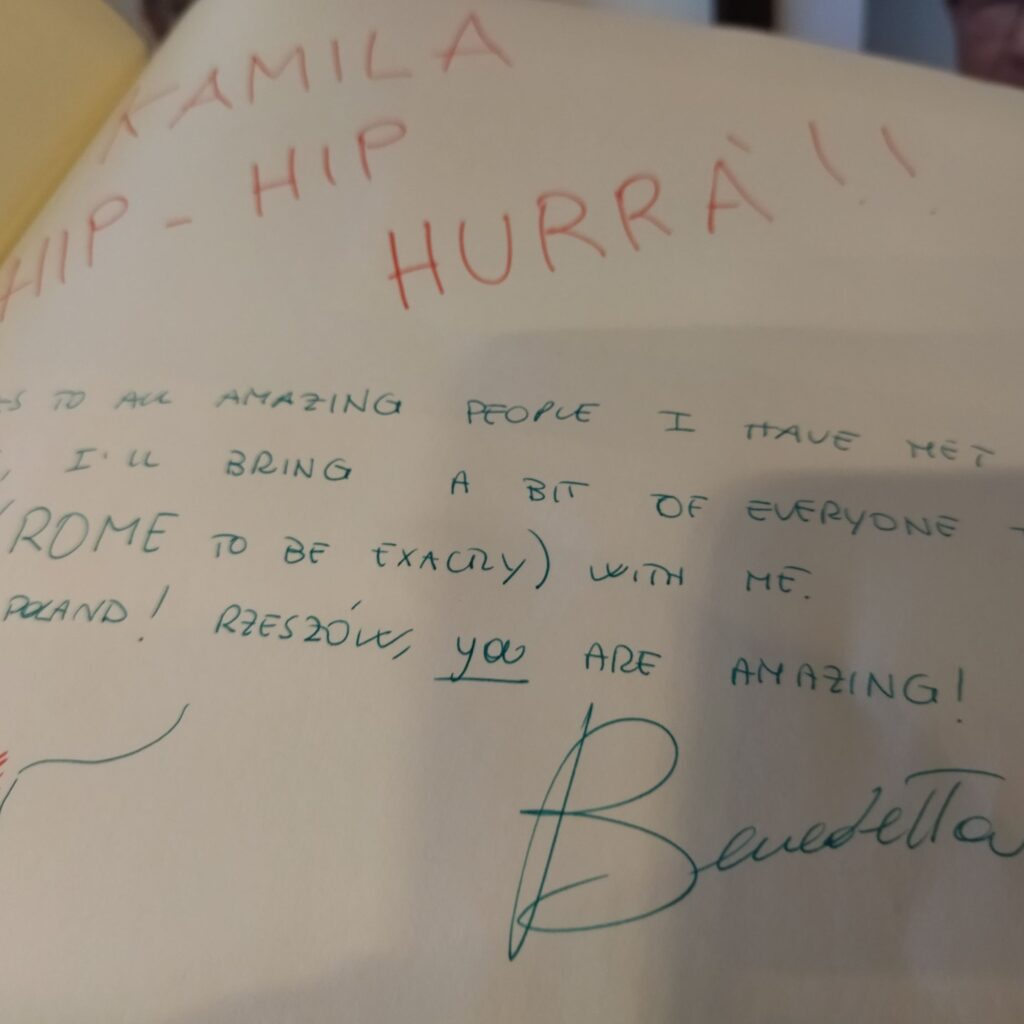 KAMILA
HIP - HIP
HURRÀ!!
TO ALL AMAZING PEOPLE I HAVE MET
, I'LL BRING A BIT OF EVERYONE
(ROME TO BE EXACTLY) WITH ME.
POLAND! RZESZÓW, you ARE AMAZING!
Benedetta